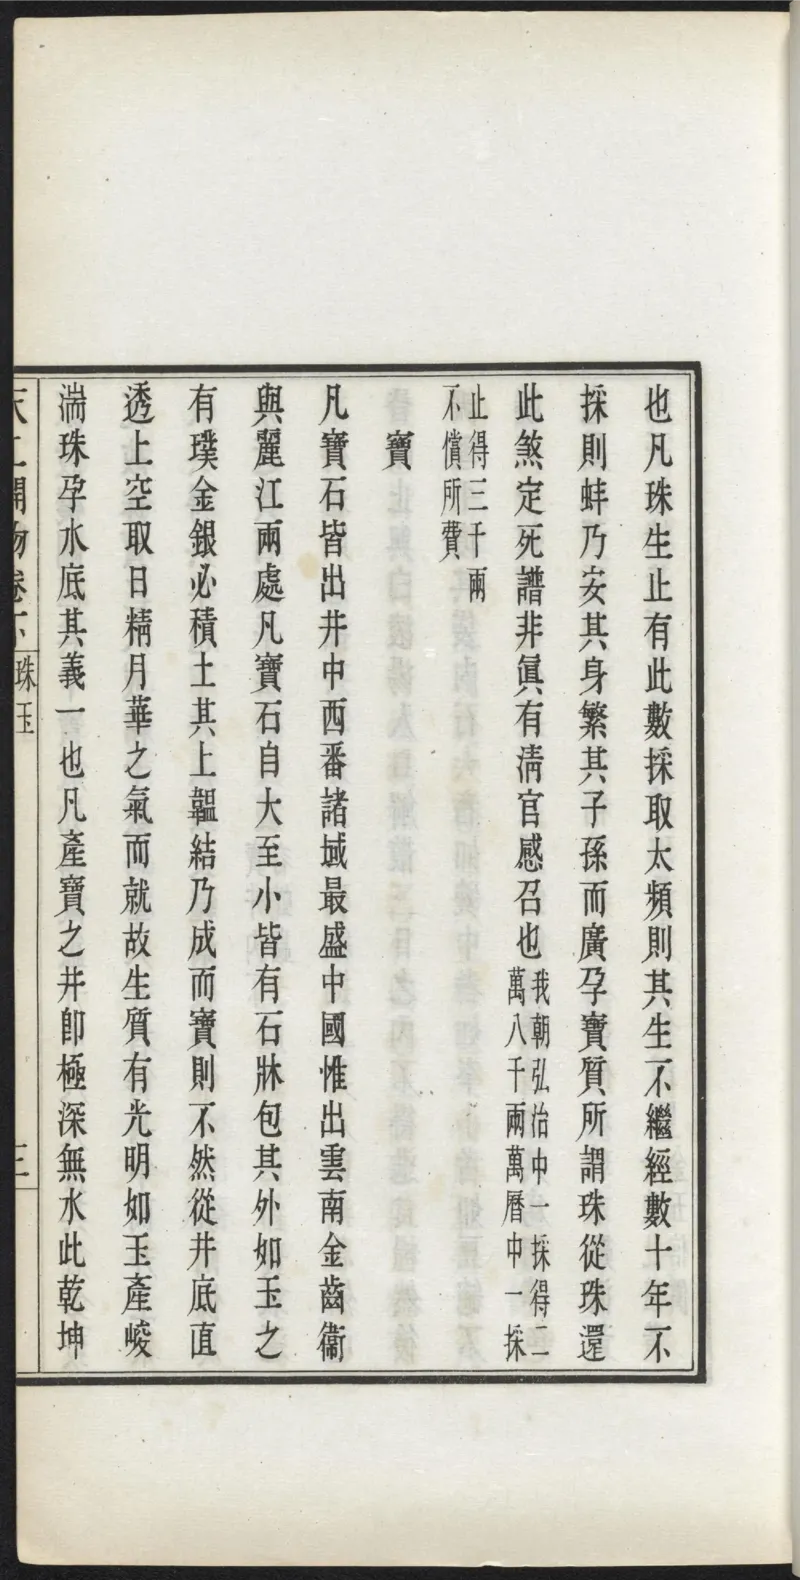 也凡珠生止有此數採取太頻則其生不繼經數十年不
採則蚌乃安其身繁其子孫而廣孕寶質所謂珠從珠還
此煞定死譜非眞有淸官感召也我朝弘治中一採得二萬八千兩萬曆中一採
止得三千兩不償所費
寶
凡寶石皆出井中西番諸域最盛中國惟出雲南金齒衞
與麗江兩處凡寶石自大至小皆有石牀包其外如玉之
有璞金銀必積土其上韞結乃成而寶則不然從井底直
透上空取日精月華之氣而就故生質有光明如玉產峻
湍珠孕水底其義一也凡產寶之井卽極深無水此乾坤
天工開物卷下 珠玉 三